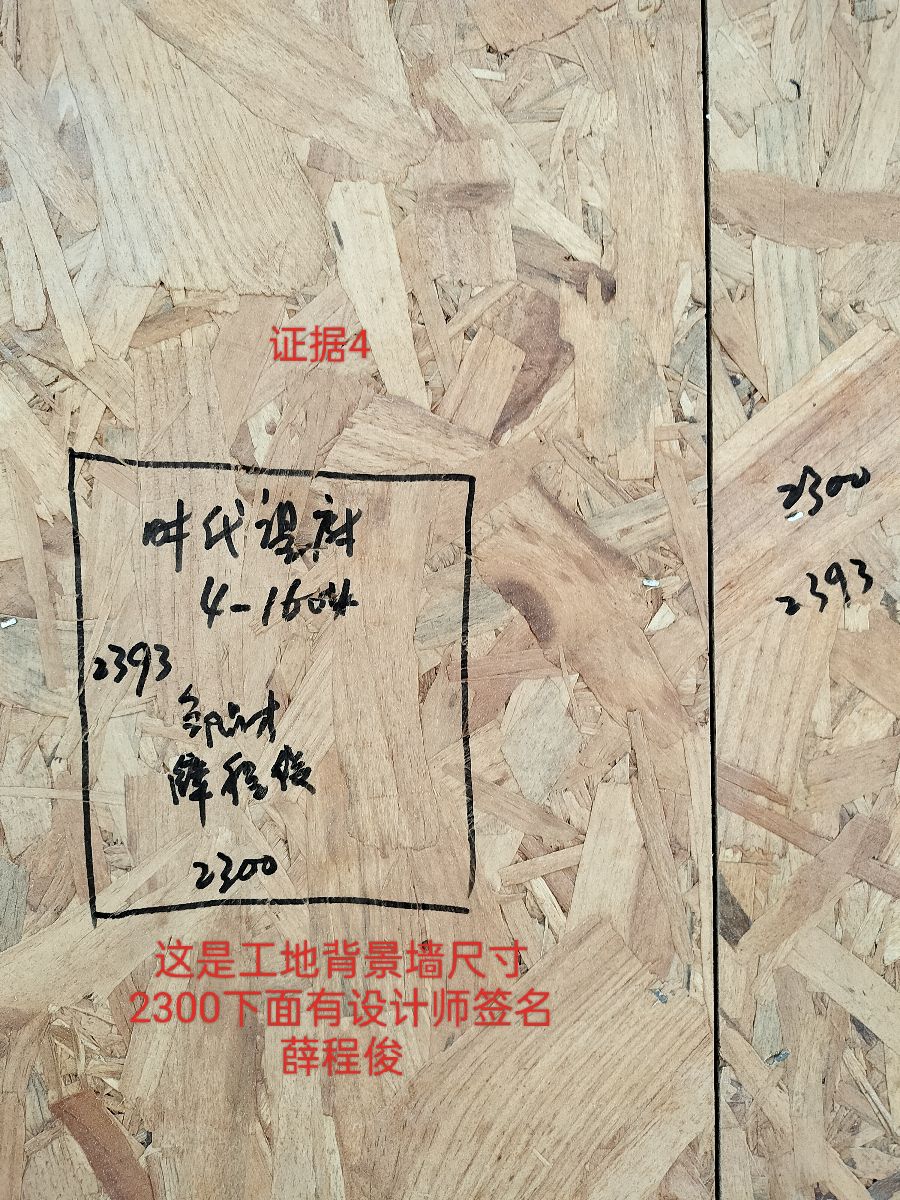 证据4
时代望府
4-1604
2393
薛程俊
2300
2300
2393
这是工地背景墙尺寸
2300下面有设计师签名
薛程俊